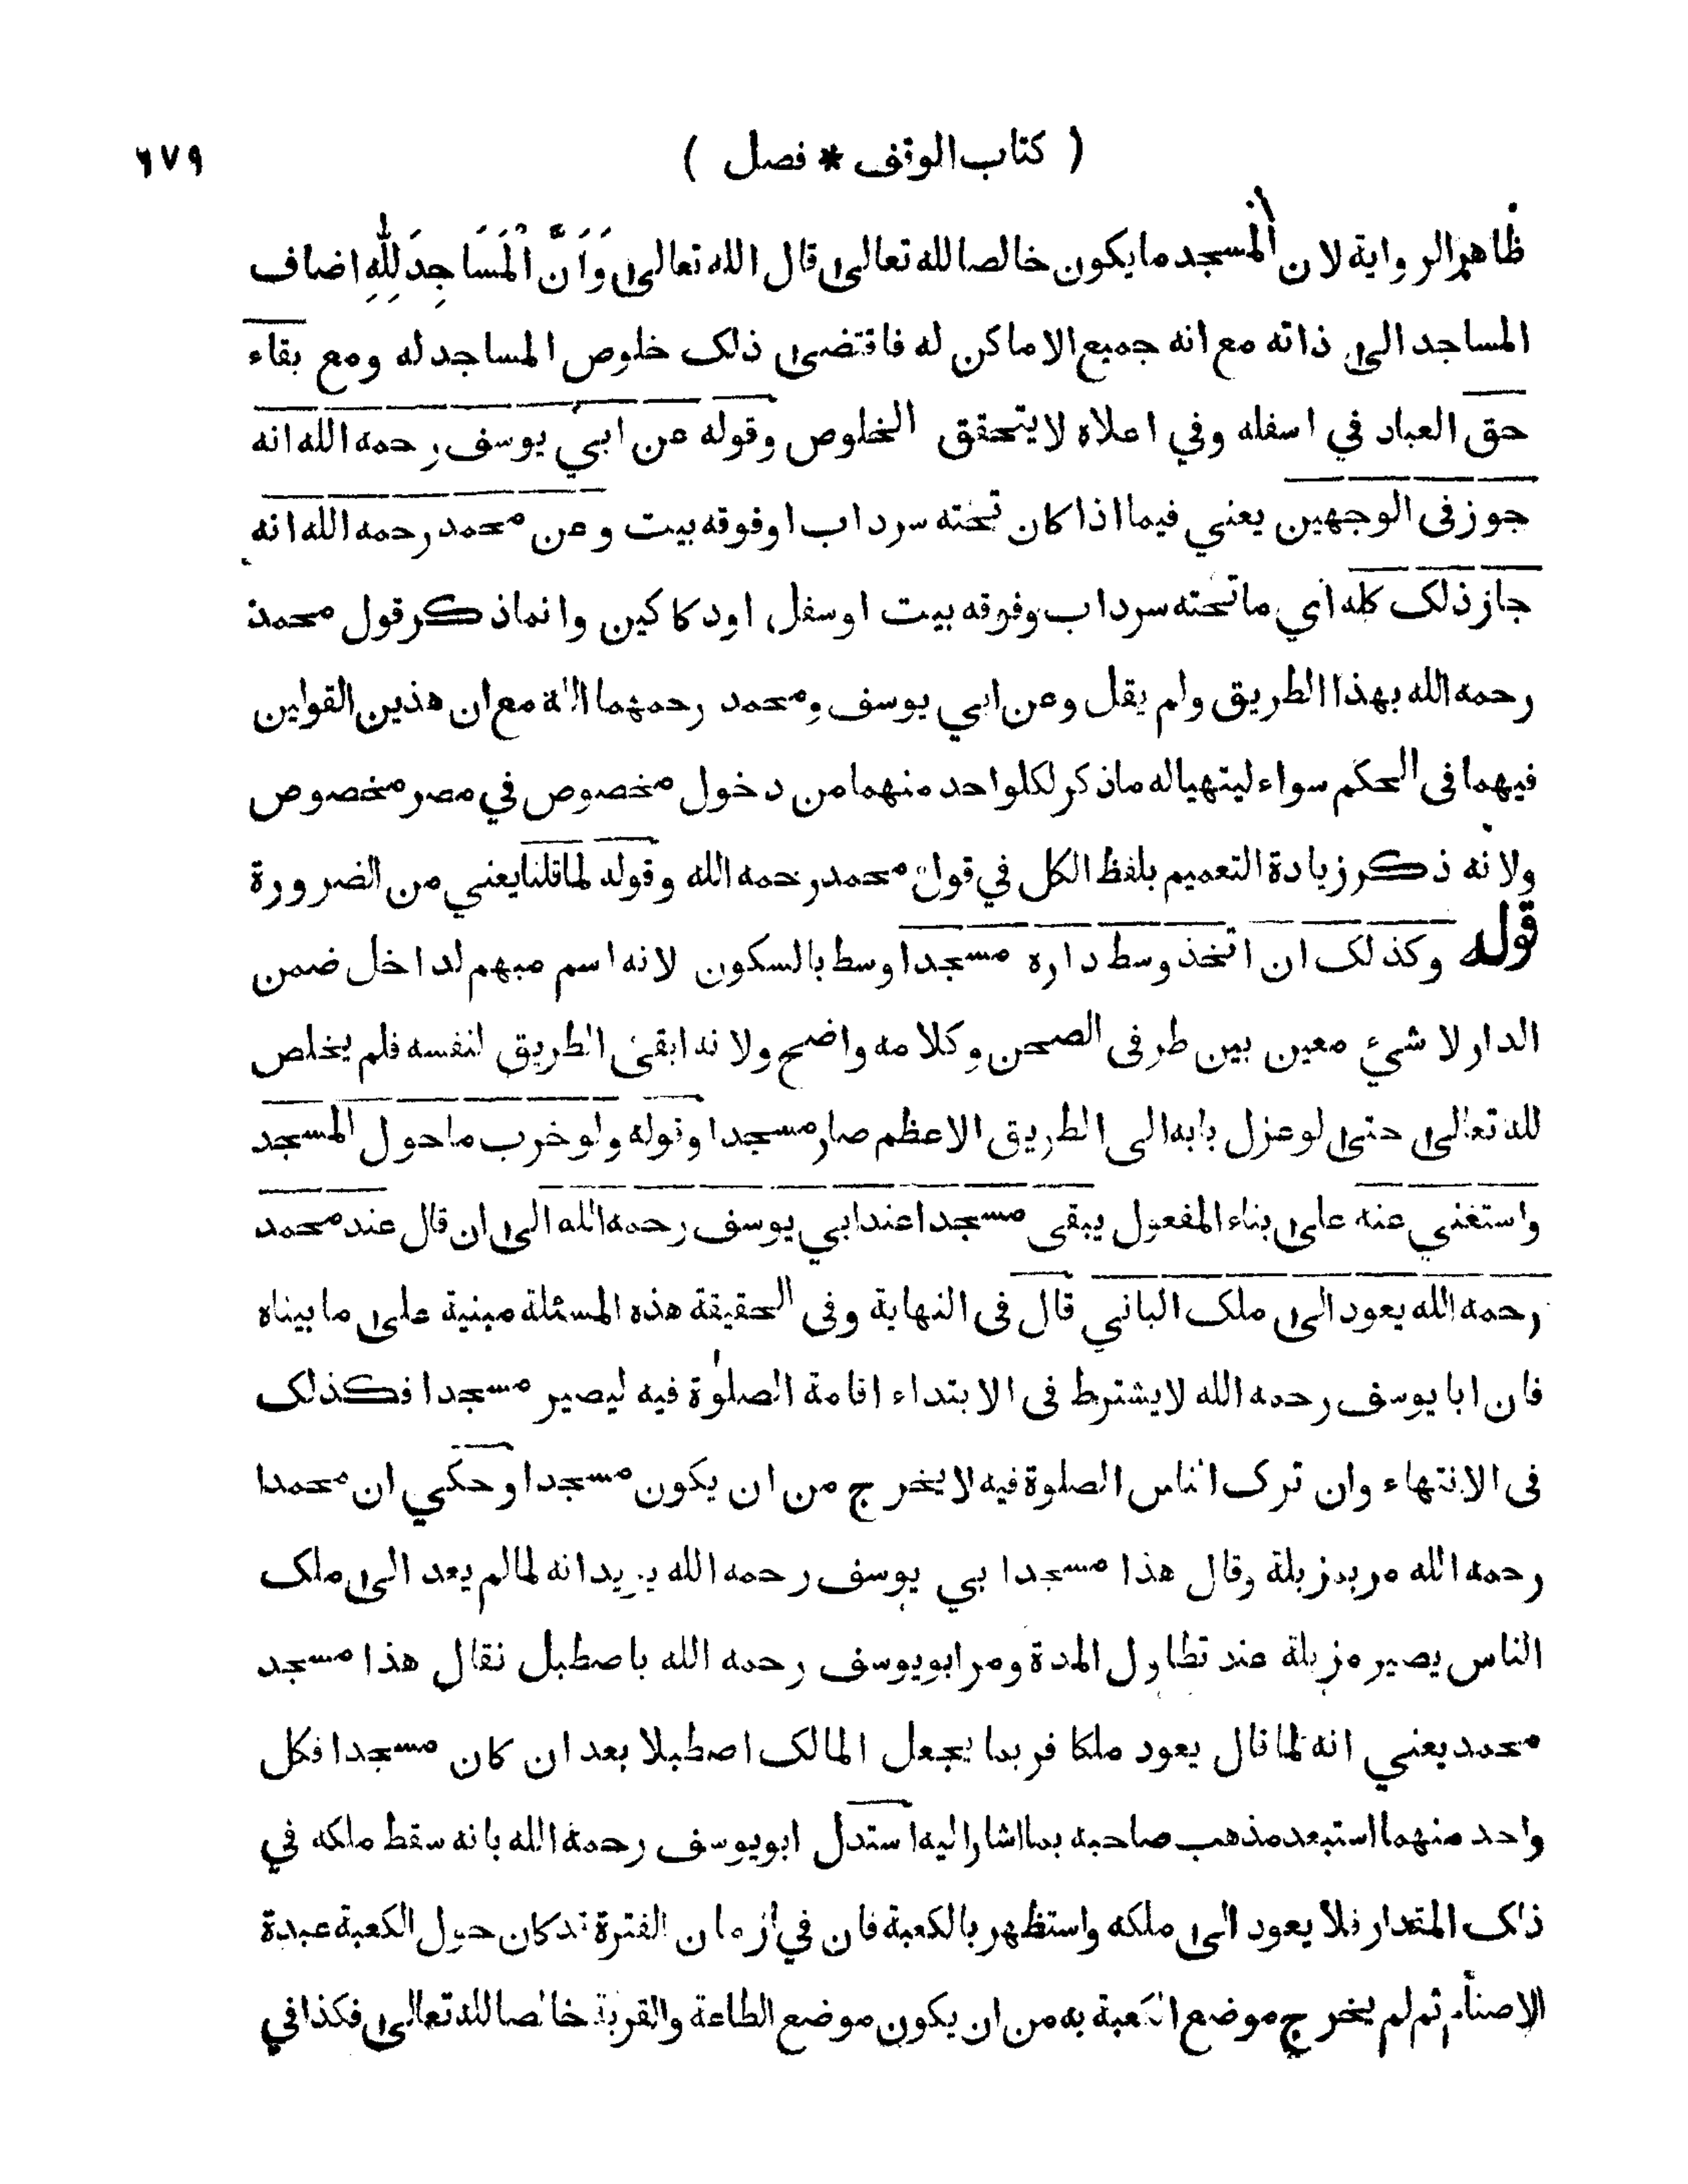 ( كتاب الوقف * فصل ) ٦٧٩
ظاهر الرواية لان المسجد ما يكون خالصا لله تعالى قال الله تعالى وَاَنَّ الْمَسَاجِدَ لِلّٰهِ اضاف
المساجد الى ذاته مع انه جميع الاماكن له فاقتضى ذلك خلوص المساجد له ومع بقاء
حق العباد في اسفله وفي اعلاه لا يتحقق الخلوص وقوله عن ابي يوسف رحمه الله انه
جوز فى الوجهين يعني فيما اذا كان تحته سرداب او فوقه بيت وعن محمد رحمه الله انه
جاز ذلك كله اي ما تحته سرداب وفوقه بيت او سفل او دكاكين وانما ذكر قول محمد
رحمه الله بهذا الطريق ولم يقل وعن ابي يوسف ومحمد رحمهما الله مع ان هذين القولين
فيهما فى الحكم سواء ليتهيا له ما ذكر لكلواحد منهما من دخول مخصوص في مصر مخصوص
ولانه ذكر زيادة التعميم بلفظ الكل في قول محمد رحمه الله وقوله لما قلنا يعني من الضرورة
قوله وكذلك ان اتخذ وسط داره مسجدا وسط بالسكون لانه اسم مبهم لداخل ضمن
الدار لا شيء معين بين طرفى الصحن وكلامه واضح ولانه ابقى الطريق لنفسه فلم يخلص
لله تعالى حتى لو عزل بابه الى الطريق الاعظم صار مسجدا وقوله ولو خرب ما حول المسجد
واستغني عنه على بناء المفعول يبقى مسجدا عند ابي يوسف رحمه الله الى ان قال عند محمد
رحمه الله يعود الى ملك الباني قال فى النهاية وفى الحقيقة هذه المسئلة مبنية على ما بيناه
فان ابا يوسف رحمه الله لا يشترط فى الابتداء اقامة الصلوٰة فيه ليصير مسجدا فكذلك
فى الانتهاء وان ترك الناس الصلوة فيه لا يخرج من ان يكون مسجدا وحكي ان محمدا
رحمه الله مر بمزبلة وقال هذا مسجد ابي يوسف رحمه الله يريد انه لما لم يعد الى ملك
الناس يصير مزبلة عند تطاول المدة ومر ابو يوسف رحمه الله باصطبل فقال هذا مسجد
محمد يعني انه لما قال يعود ملكا فربما يجعل المالك اصطبلا بعد ان كان مسجدا فكل
واحد منهما استبعد مذهب صاحبه بما اشار اليه استدل ابو يوسف رحمه الله بانه سقط ملكه في
ذلك المقدار فلا يعود الى ملكه واستظهر بالكعبة فان في ازمان الفترة قد كان حول الكعبة عبدة
الاصنام ثم لم يخرج موضع الكعبة به من ان يكون موضع الطاعة والقربة خالصا لله تعالى فكذا في